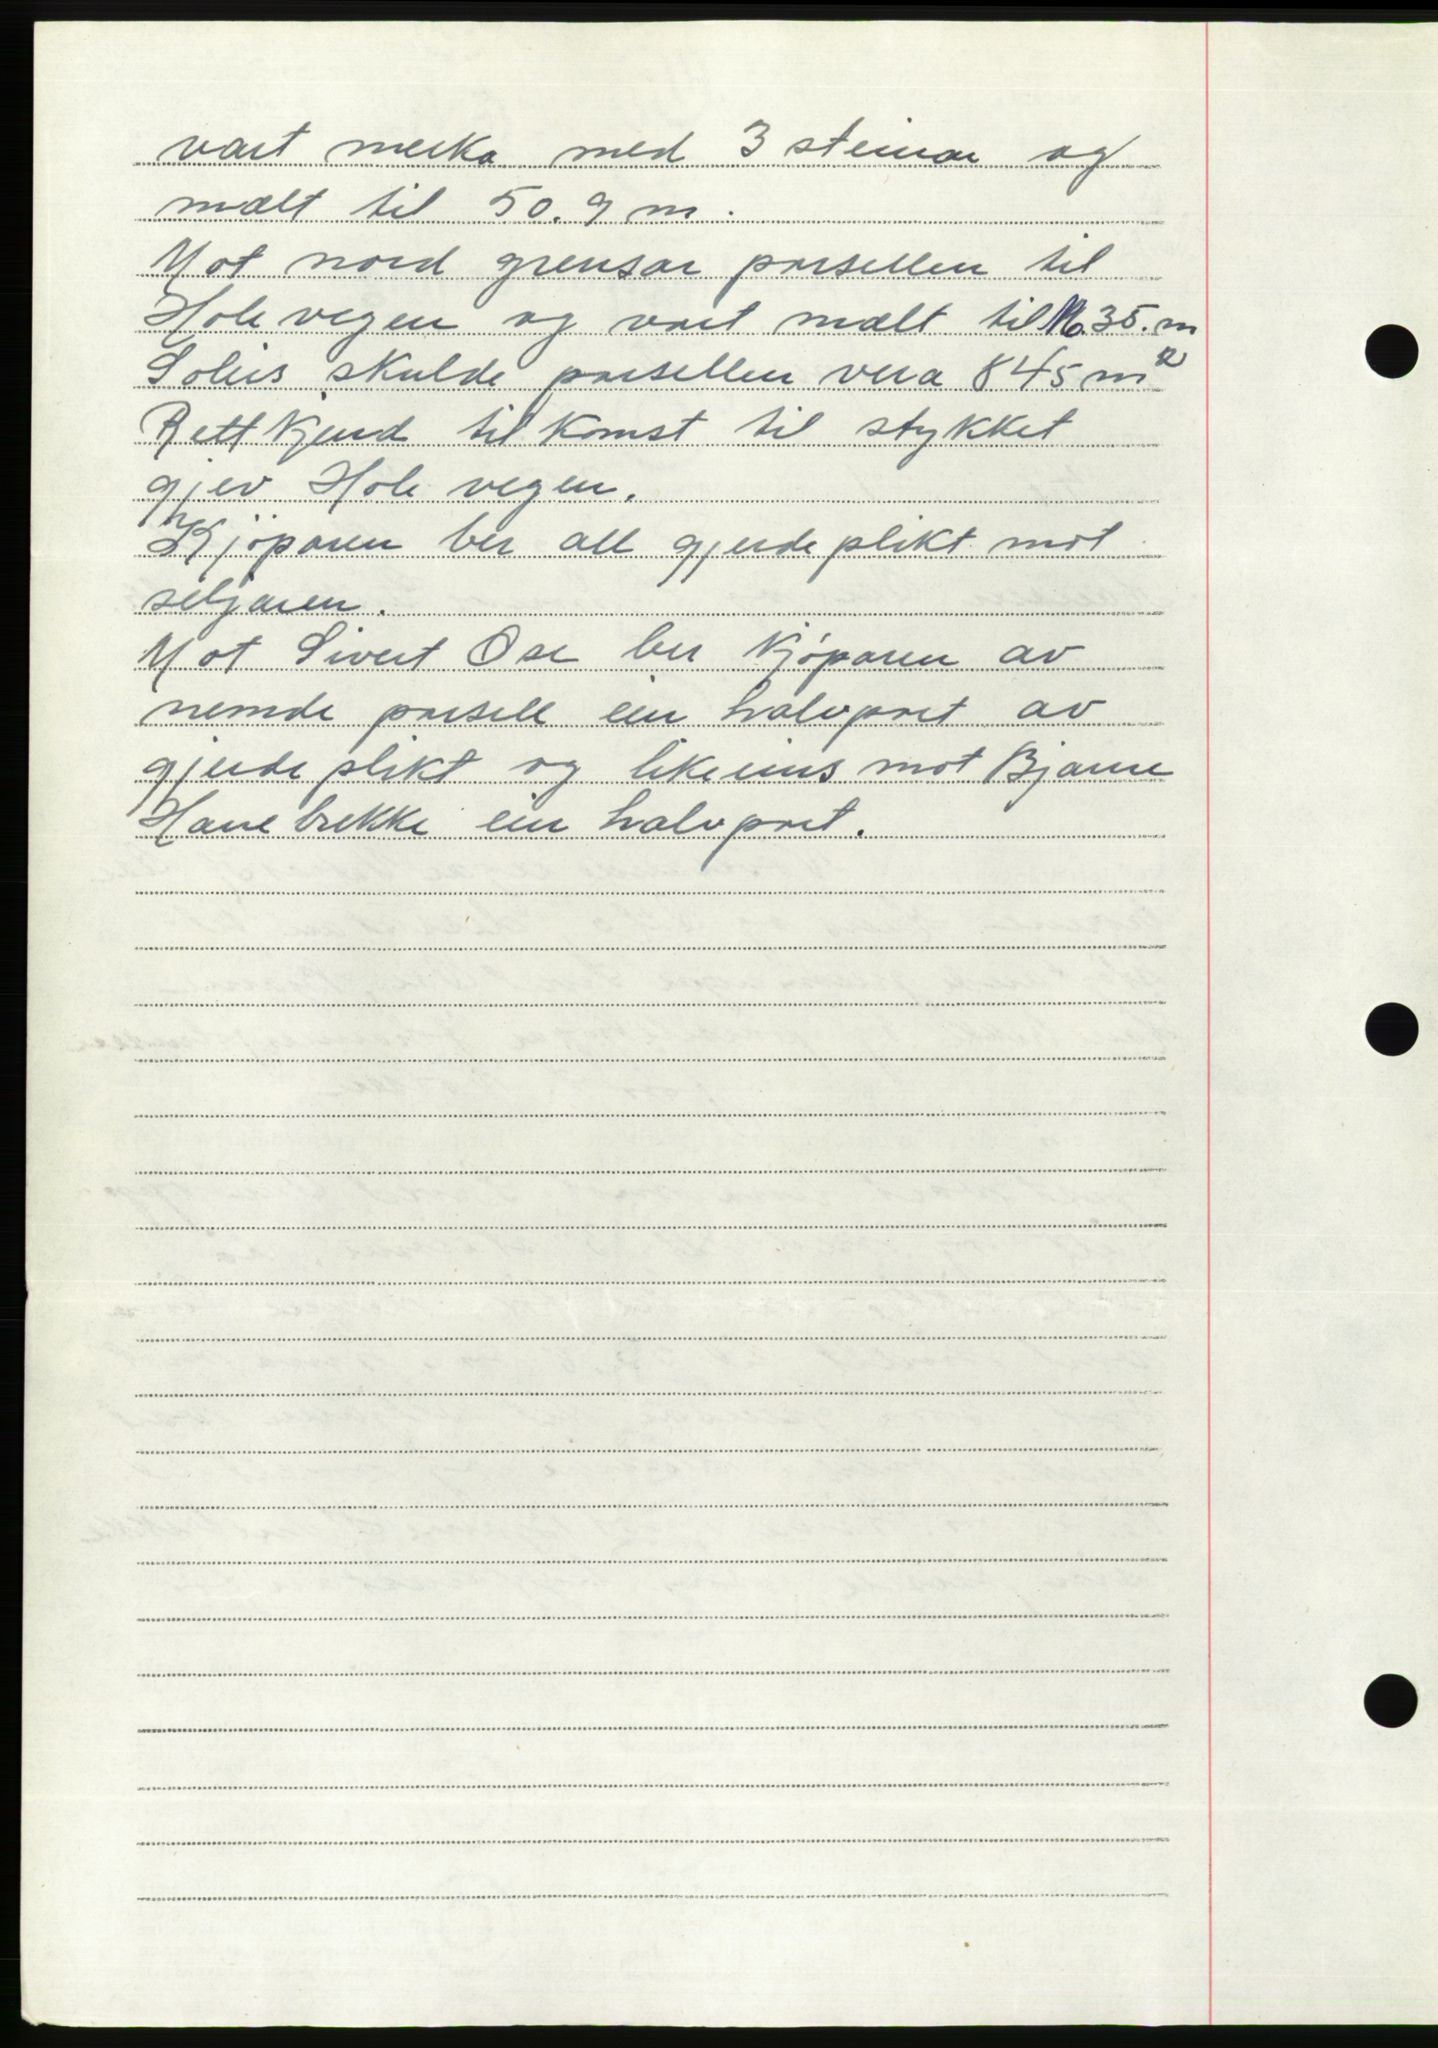 vart merka med 3 steinar og
mælt til 50.9 m.
Mot nord grensar parsellen til
Holevegen og vart mælt til 16.35. m
Soleis skulde parsellen vera 845 m²
Rettkjend tilkomst til stykket
gjev Hole vegen.
Kjöparen ber all gjerdeplikt mot
seljaren.
Mot Sivert Ose ber kjöparen av
nemde parsell ein halvpart av
gjerdeplikt og likeeins mot Bjarne
Hanebrekke ein halvpart.